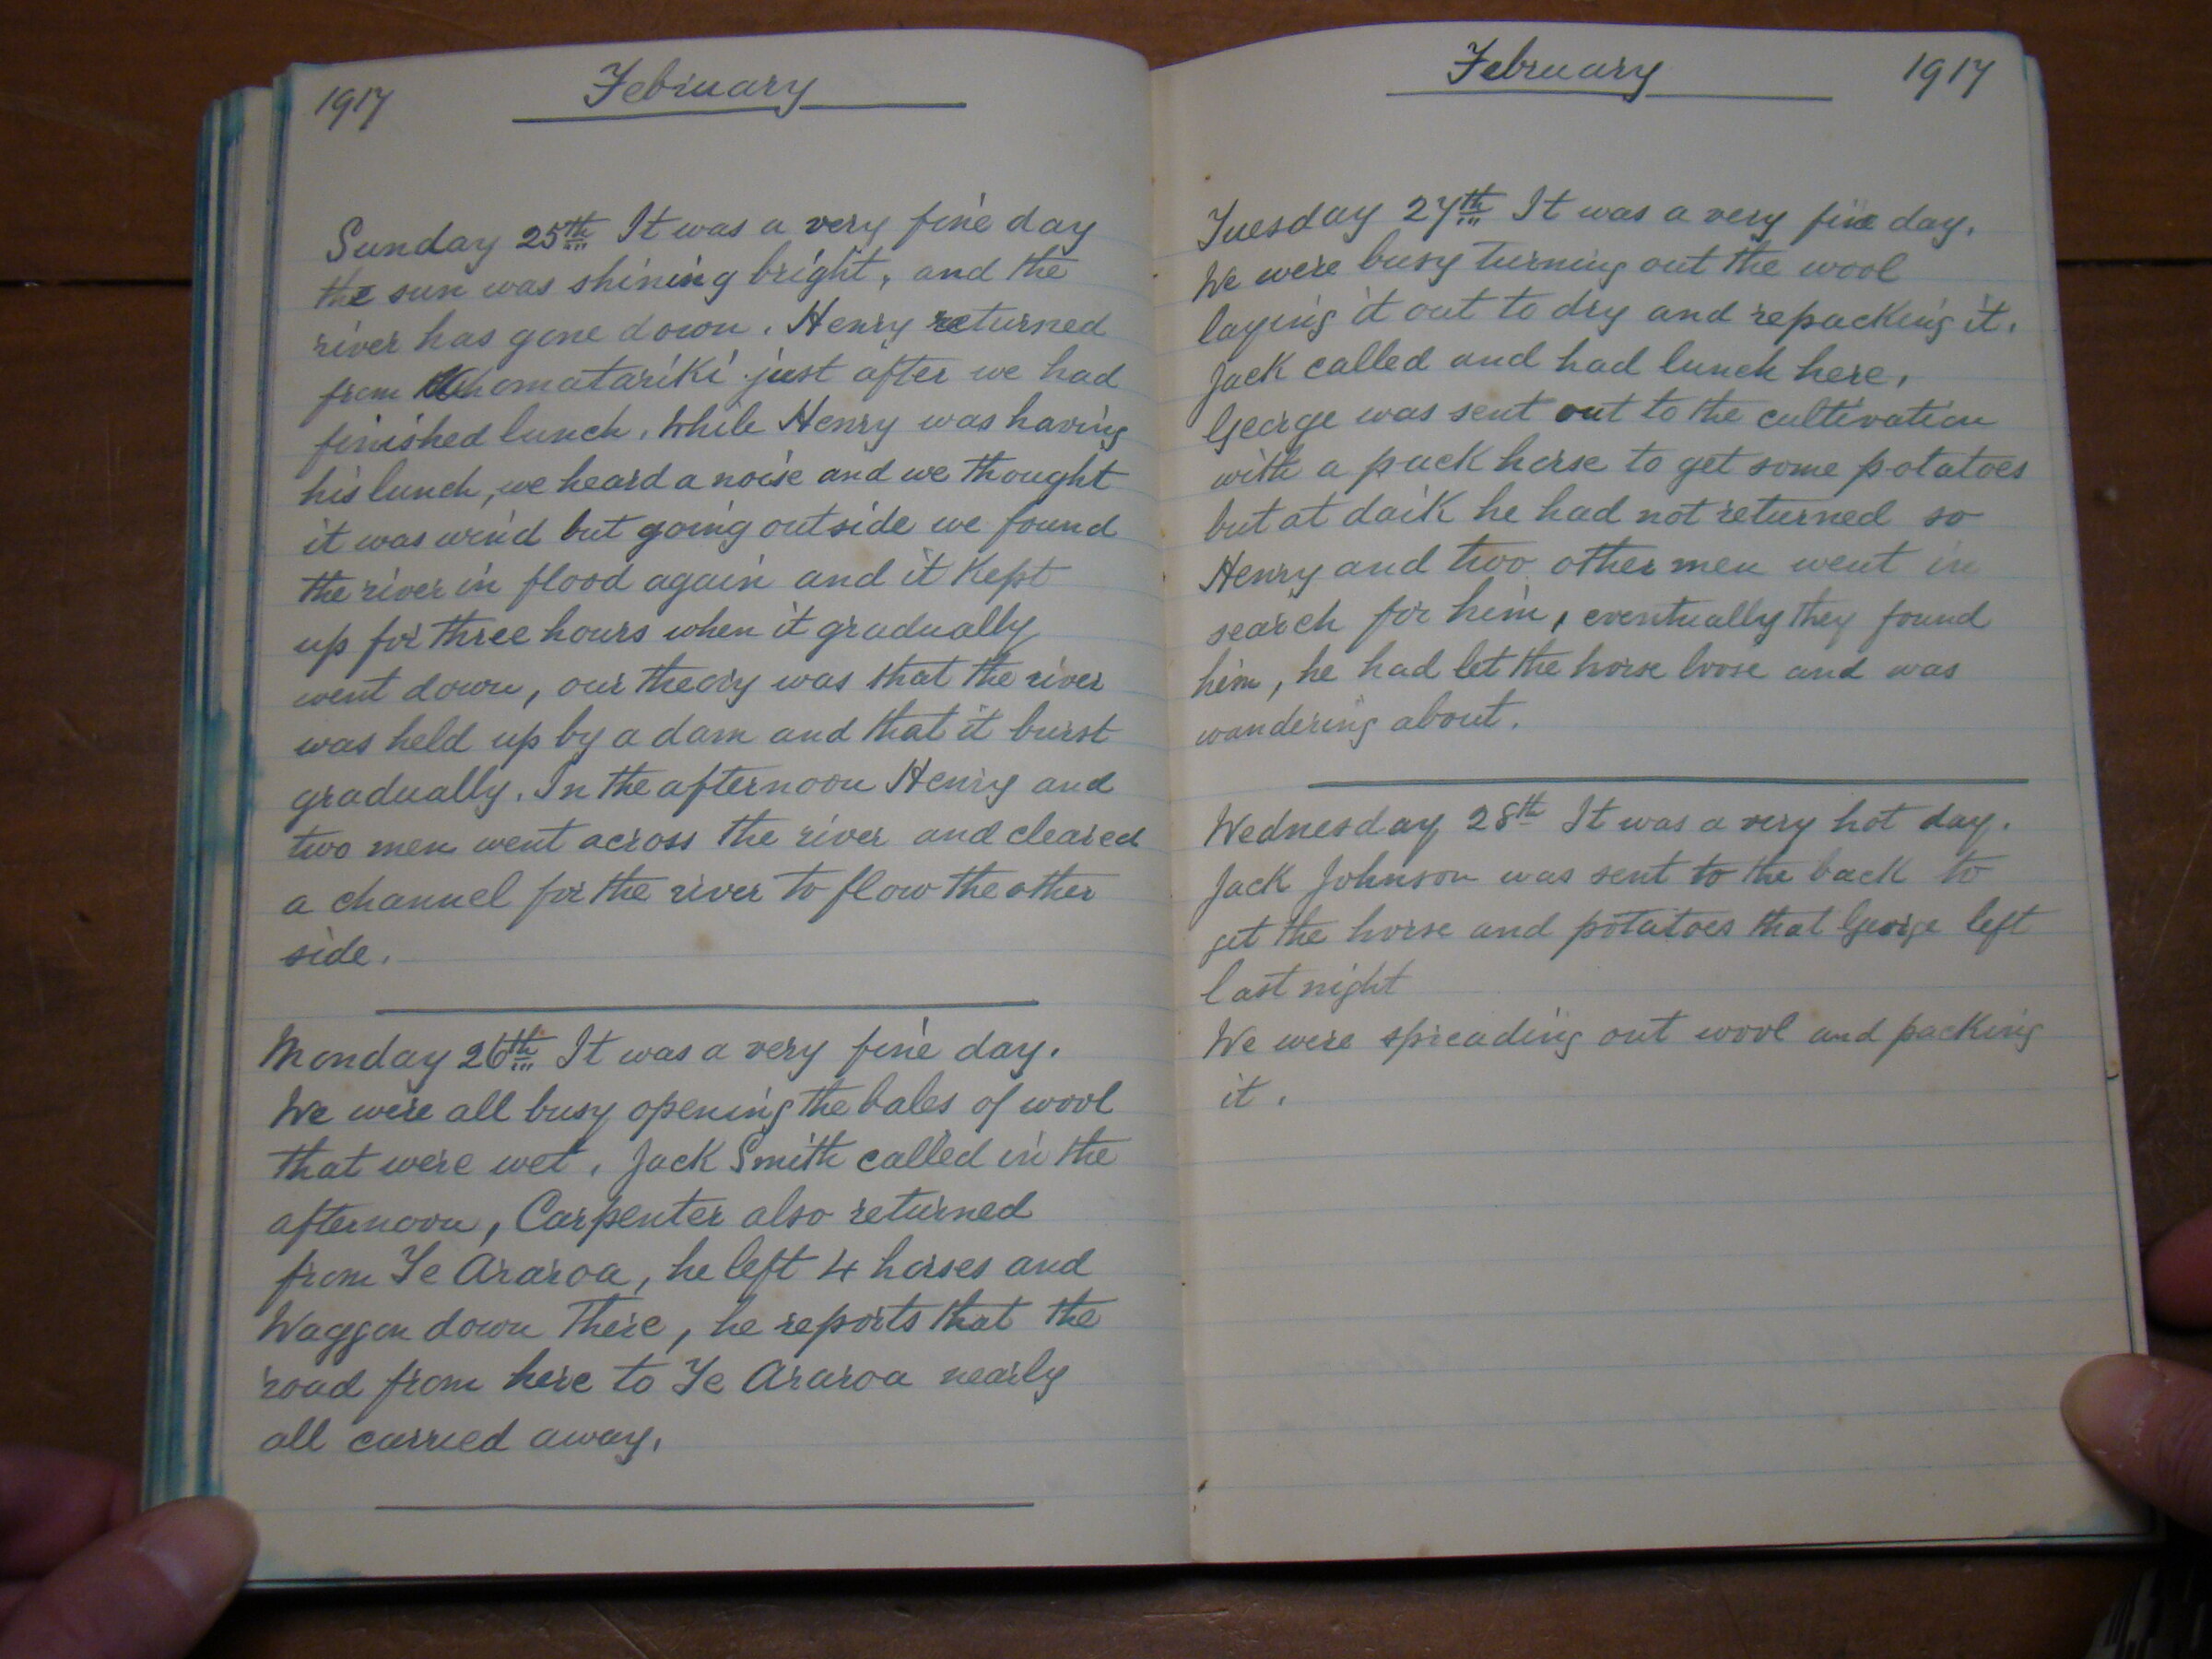 1917 February
Sunday 25th It was a very fine day
the sun was shining bright, and the
river has gone down. Henry returned
from Whomatariki just after we had
finished lunch. While Henry was having
his lunch, we heard a noise and we thought
it was wind but going outside we found
the river in flood again and it kept
up for three hours when it gradually
went down, our theory was that the river
was held up by a dam and that it burst
gradually. In the afternoon Henry and
two men went across the river and cleared
a channel for the river to flow the other
side.
Monday 26th It was a very fine day.
We were all busy opening the bales of wool
that were wet. Jack Smith called in the
afternoon, Carpenter also returned
from Te Araroa, he left 4 horses and
Waggon down there, he reports that the
road from here to Te Araroa nearly
all carried away.
February 1917
Tuesday 27th It was a very fine day.
We were busy turning out the wool
laying it out to dry and repacking it.
Jack called and had lunch here.
George was sent out to the cultivation
with a pack horse to get some potatoes
but at dark he had not returned so
Henry and two other men went in
search for him, eventually they found
him, he had let the horse loose and was
wandering about.
Wednesday 28th It was a very hot day.
Jack Johnson was sent to the back to
get the horse and potatoes that George left
last night
We were spreading out wool and packing
it.